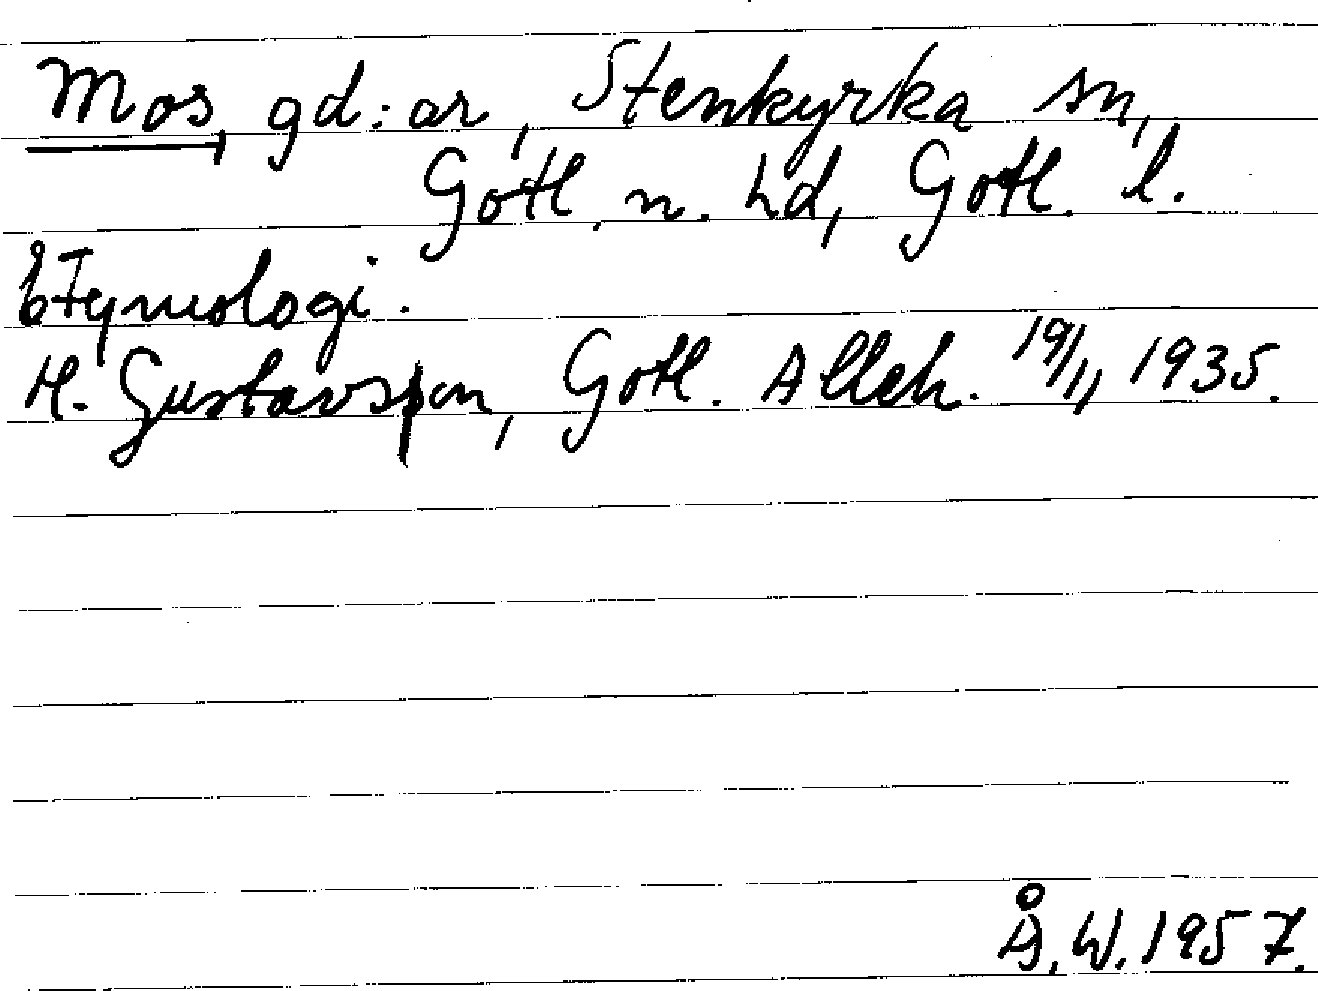 Mos, gd:ar, Stenkyrka sn,
Gotl. n. hd, Gotl. l.
Etymologi.
H. Gustavson, Gotl. Alleh. 19/11 1935.
Å. W. 1957.